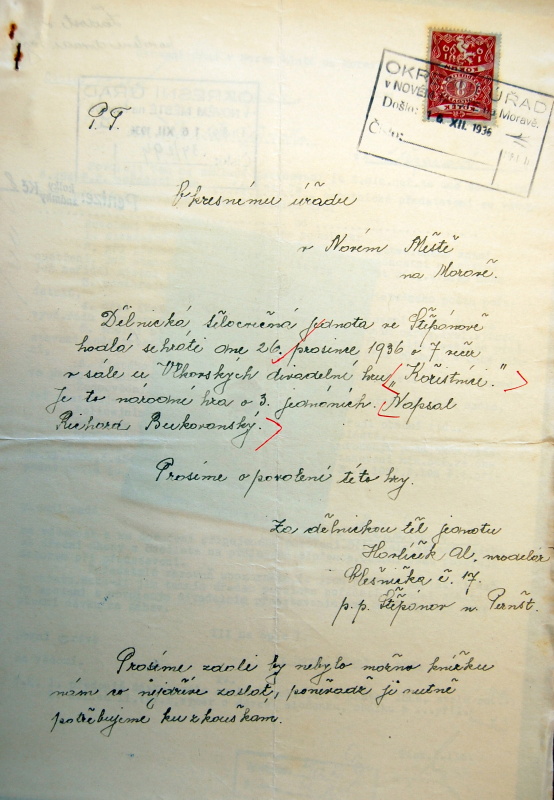 OKR ÚŘAD
v NOVÉM na Moravě.
Došlo: 16. XII. 1936
Číslo:
P.T.
Okresnímu úřadu
v Novém Městě
na Moravě.
Dělnická tělocvičná jednota ve Štěpánově
hodlá sehráti dne 26. prosince 1936 v 7 več
v sále u Vlkovských divadelní hru „Kořistníci."
Je to národní hra o 3. jednáních. Napsal
Richard Bukovanský.
Prosíme o povolení této hry.
Za dělnickou těl jednotu
Havlíček Al. modelář
č. 17.
p.p. Štěpánov n. Pernšt.
Prosíme zdali by nebylo možno knížku
nám co nejdříve zaslat, poněvadž ji nutně
potřebujeme ku zkouškám.